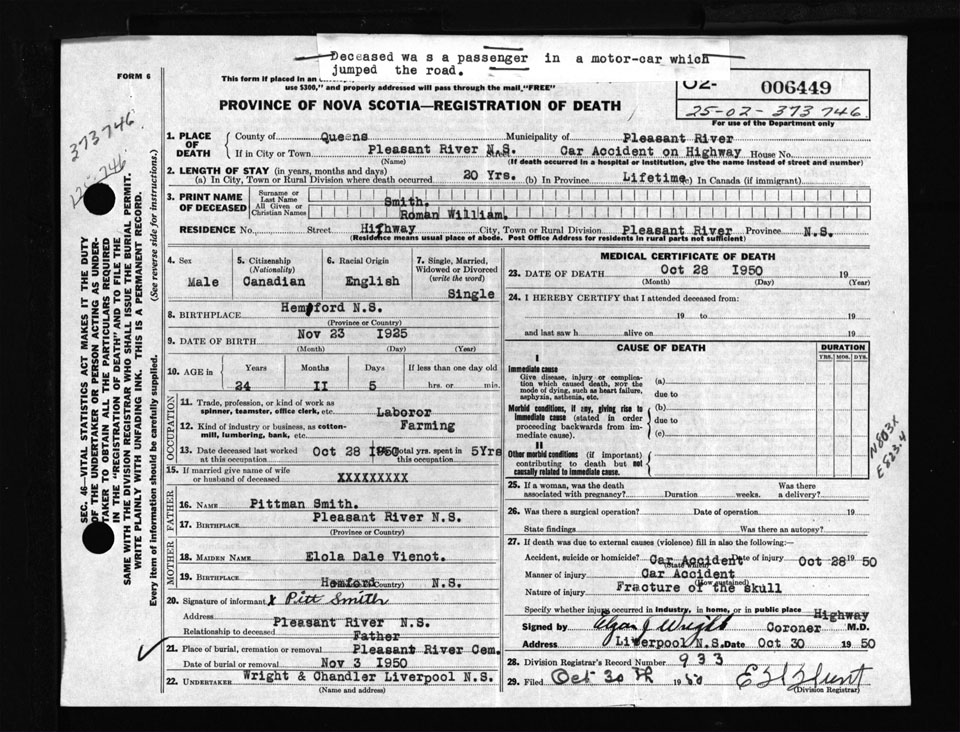 Deceased wa s a passenger in a motor-car which
jumped the road.
FORM 6
This form if placed in an
use $300," and properly addressed will pass through the mail, "FREE"
PROVINCE OF NOVA SCOTIA—REGISTRATION OF DEATH
02- 006449
25-02-373746
For use of the Department only
373746
SEC. 46—VITAL STATISTICS ACT MAKES IT THE DUTY
OF THE UNDERTAKER OR PERSON ACTING AS UNDER-
TAKER TO OBTAIN ALL THE PARTICULARS REQUIRED
IN THE "REGISTRATION OF DEATH" AND TO FILE THE
SAME WITH THE DIVISION REGISTRAR WHO SHALL ISSUE THE BURIAL PERMIT.
WRITE PLAINLY WITH UNFADING INK. THIS IS A PERMANENT RECORD.
Every item of information should be carefully supplied. (See reverse side for instructions.)
1. PLACE OF DEATH
County of Queens Municipality of Pleasant River
If in City or Town Pleasant River N.S. Street Car Accident on Highway House No.
(Name) (If death occurred in a hospital or institution, give the name instead of street and number)
2. LENGTH OF STAY (in years, months and days)
(a) In City, Town or Rural Division where death occurred 20 Yrs. (b) In Province Lifetime (c) In Canada (if immigrant)
3. PRINT NAME OF DECEASED
Surname or Last Name Smith.
All Given or Christian Names Roman William.
RESIDENCE No. Street Highway City, Town or Rural Division Pleasant River Province N.S.
(Residence means usual place of abode. Post Office Address for residents in rural parts not sufficient)
4. Sex Male
5. Citizenship (Nationality) Canadian
6. Racial Origin English
7. Single, Married, Widowed or Divorced (write the word) Single
8. BIRTHPLACE Hemford N.S.
(Province or Country)
9. DATE OF BIRTH Nov 23 I925
(Month) (Day) (Year)
10. AGE in Years Months Days If less than one day old
24 II 5 hrs. or min.
OCCUPATION
11. Trade, profession, or kind of work as
spinner, teamster, office clerk, etc. Laboror
12. Kind of industry or business, as cotton-
mill, lumbering, bank, etc. Farming
13. Date deceased last worked at this occupation Oct 28 I950 Total yrs. spent in this occupation 5Yrs
15. If married give name of wife
or husband of deceased XXXXXXXXX
FATHER
16. NAME Pittman Smith.
17. BIRTHPLACE Pleasant River N.S.
(Province or Country)
MOTHER
18. MAIDEN NAME Elola Dale Vienot.
19. BIRTHPLACE Hemford N.S.
20. Signature of informant x Pitt Smith
Address Pleasant River N.S.
Relationship to deceased Father
21. Place of burial, cremation or removal Pleasant River Cem.
Date of burial or removal Nov 3 I950
22. UNDERTAKER Wright & Chandler Liverpool N.S.
(Name and address)
MEDICAL CERTIFICATE OF DEATH
23. DATE OF DEATH Oct 28 I950 19
(Month) (Day) (Year)
24. I HEREBY CERTIFY that I attended deceased from:
19 to 19
and last saw h alive on 19
CAUSE OF DEATH DURATION
YRS. MOS. DYS.
I
Immediate cause
Give disease, injury or complica-
tion which caused death, NOT the
mode of dying, such as heart failure,
asphyxia, asthenia, etc.
(a)
due to
Morbid conditions, if any, giving rise to
immediate cause (stated in order
proceeding backwards from im-
mediate cause).
(b)
due to
(c)
II
Other morbid conditions (if important)
contributing to death but not
causally related to immediate cause.
N803X
E823.4
25. If a woman, was the death Was there
associated with pregnancy? Duration weeks. a delivery?
26. Was there a surgical operation? Date of operation 19
State findings Was there an autopsy?
27. If death was due to external causes (violence) fill in also the following:—
Accident, suicide or homicide? Car Accident Date of injury Oct 28 19 50
(State which)
Manner of injury Car Accident
(How sustained)
Nature of injury Fracture of the skull
Specify whether injury occurred in industry, in home, or in public place Highway
Signed by Coroner M.D.
Address Liverpool N.S. Date Oct 30 19 50
28. Division Registrar's Record Number 933
29. Filed Oct 30th 19 50
(Division Registrar)